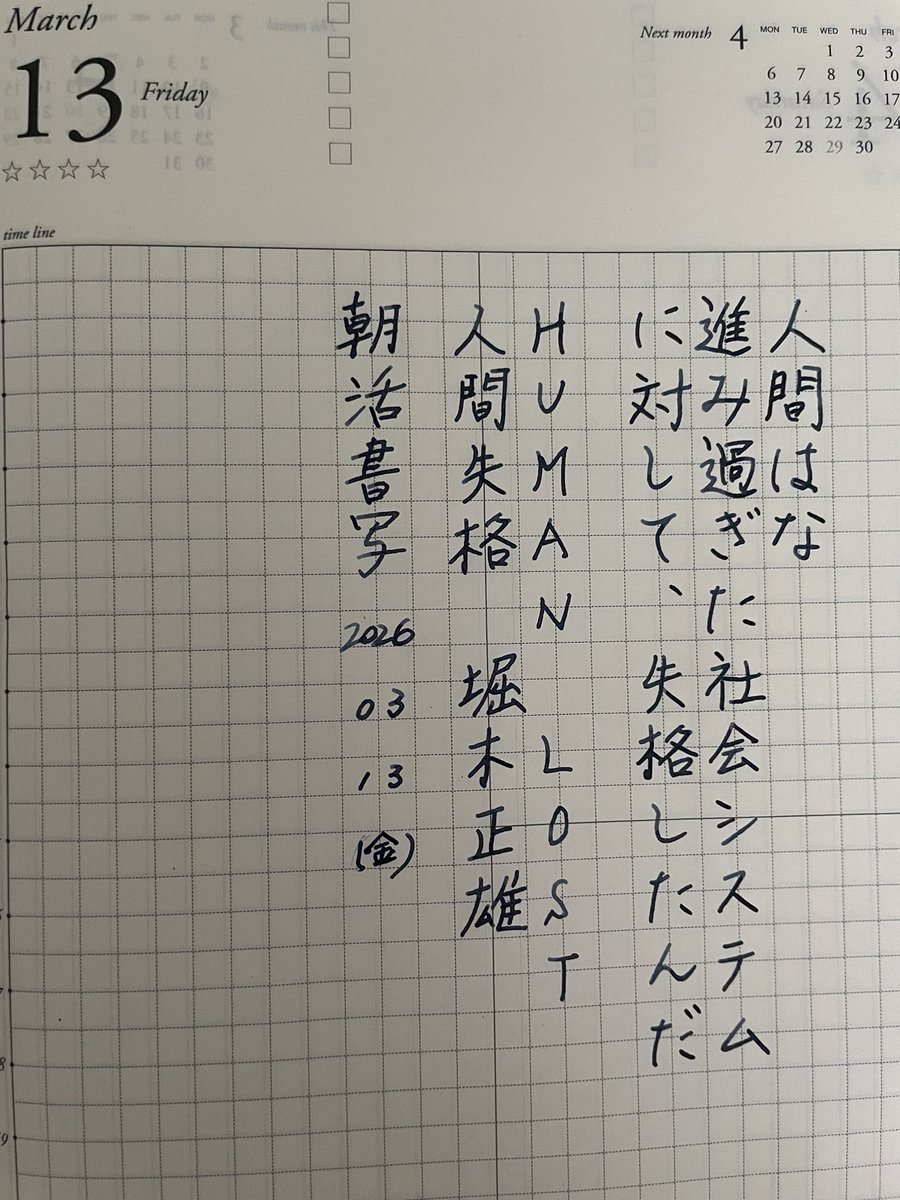 March
13 Friday
☆☆☆☆
Next month 4
MON TUE WED THU FRI
1 2 3
6 7 8 9 10
13 14 15 16 17
20 21 22 23 24
27 28 29 30
time line
人間はな
進み過ぎた 社会システム
に対して、失格したんだ
HUMAN LOST
人間失格 堀木正雄
朝活書写 2026 03 13 (金)
8
9